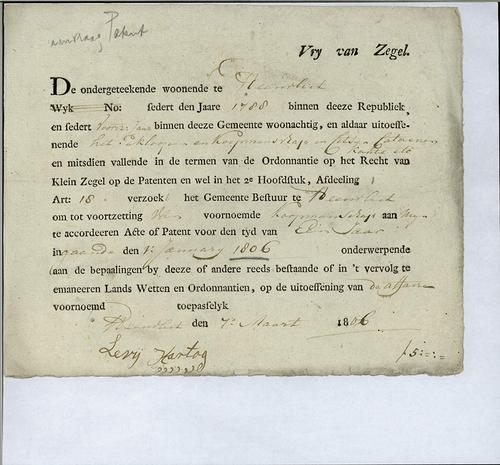 aanvraag Patent
Vry van Zegel.
De ondergeteekende woonende te
Wyk No: sedert den Jaare 1788 binnen deeze Republiek,
en sedert voorn: Jaar binnen deeze Gemeente woonachtig, en aldaar uitoeffe-
nende het en koopmanschap in Catoenen
kante etc
en mitsdien vallende in de termen van de Ordonnantie op het Recht van
Klein Zegel op de Patenten en wel in het 2e Hoofdstuk, Afdeeling 1
Art: 18 verzoekt het Gemeente Bestuur te
om tot voortzetting voornoemde koopmanschap aan
te accordeeren Acte of Patent voor den tyd van Een Jaar
in den 1e January 1806 onderwerpende
aan de bepaalingen by deeze of andere reeds bestaande of in 't vervolg te
emaneeren Lands Wetten en Ordonnantien, op de uitoeffening van de affaire
voornoemd toepasselyk
den 7e Maart 1806
Levij Hartog
f 5:-:-